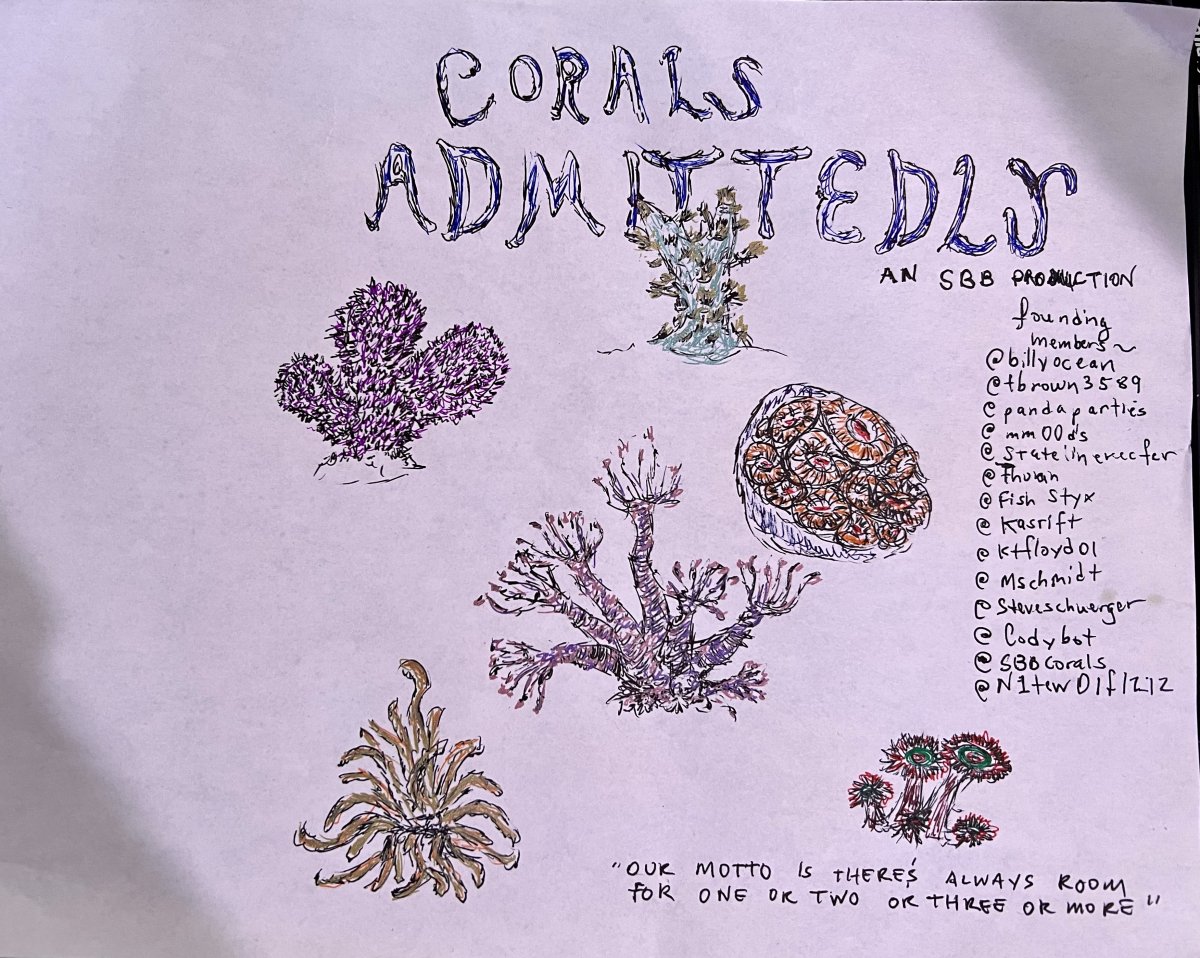 CORALS
ADMITTEDLY
AN SBB PRODUCTION
founding
members~
@billyocean
@tbrown3589
@pandaparties
@mm00d's
@thuan
@Fish Styx
@Kasrift
@ktfloyd01
@Mschmidt
@Steveschwerger
@Codybot
@SBBcorals
"OUR MOTTO IS THERE'S ALWAYS ROOM
FOR ONE OR TWO OR THREE OR MORE"